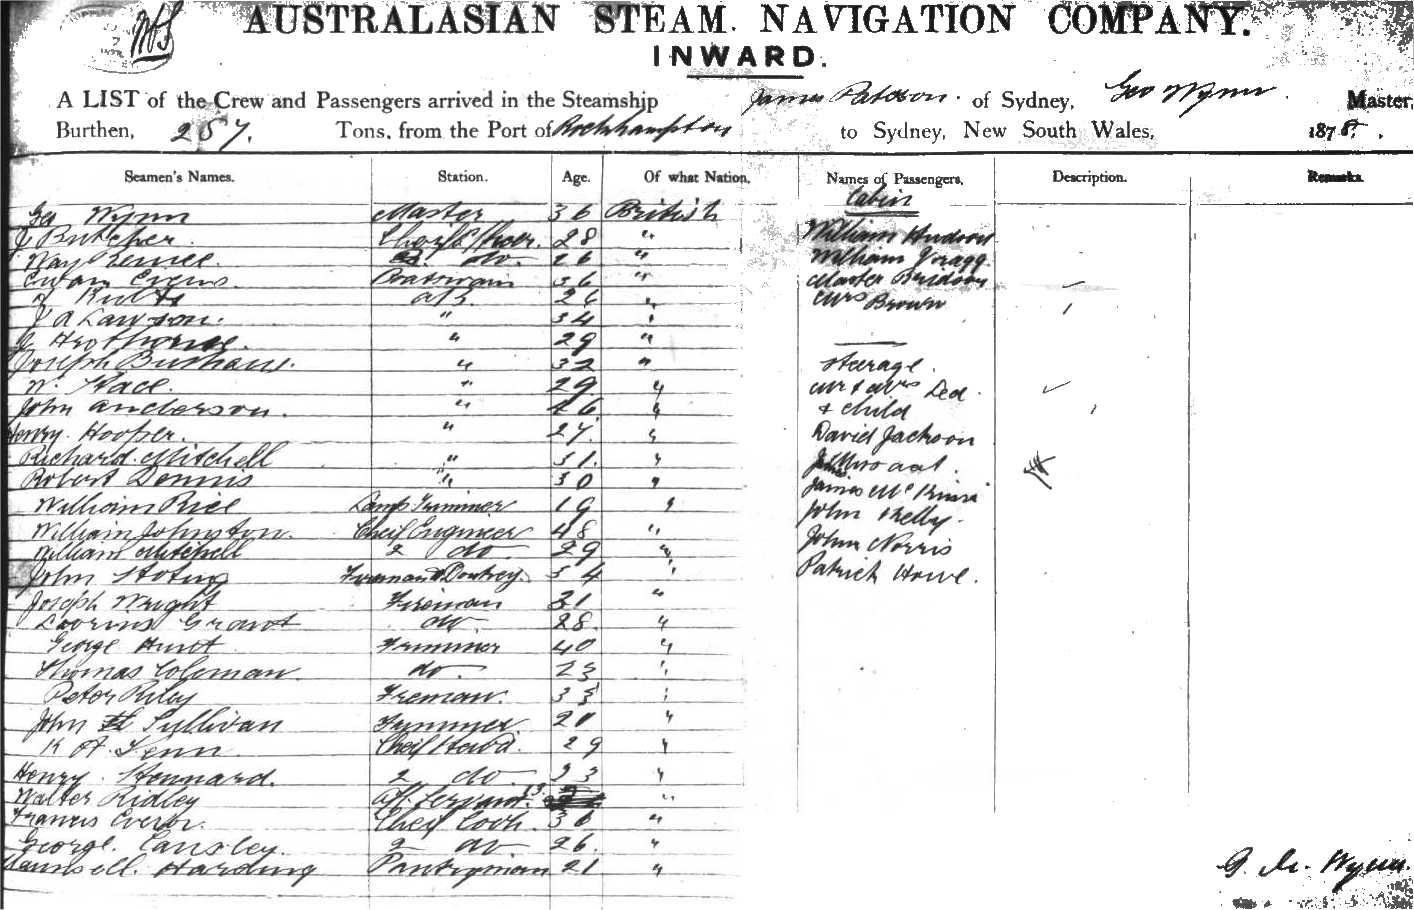 AUSTRALASIAN STEAM NAVIGATION COMPANY.
INWARD.
A LIST of the Crew and Passengers arrived in the Steamship James Paterson. of Sydney, Geo Wynn. Master,
Burthen, 257. Tons, from the Port of Rockhampton to Sydney, New South Wales, 1878.
Seamen's Names. Station. Age. Of what Nation,
Geo Wynn Master 36 British
J Butcher Cheif Officer. 28 "
do. 26 "
Evan Evens Boatswain 36 "
J Butts AB. 26 "
J A Lawson. " 34 "
" 29 "
Joseph " 32 "
W. " 29 "
John Anderson. " 46 "
Henry Hooper. " 27. "
Richard Mitchell " 31. "
Robert Dennis " 30 "
William Rice Lamp Trimmer 19 "
William Johnston. Cheif Engineer 48 "
William Mitchell 2 do 29 "
John Fireman & Donkey 34 "
Joseph Wright Fireman 31 "
Grant do. 28. "
George Hunt Trimmer 40 "
Thomas Coleman do 23 "
Peter Riley Fireman. 33 "
John Sullivan Trimmer 20 "
K A. Fenn Cheif Stewd. 29 "
Henry Stennard. 2 do 23 "
Walter Ridley Aft. Servant. 13. "
Francis Cheif Cook. 36 "
George. Cansley. 2 do 26. "
Harding Pantryman 21 "
Names of Passengers, Description. Remarks.
Cabin
William Hudson
William Gragg.
Master
Mrs Brown
Steerage.
Mr & Mrs Led
& child
David Jackson
James
John Kelly.
John Norris
Patrick Howe.
G. M. Wynn.